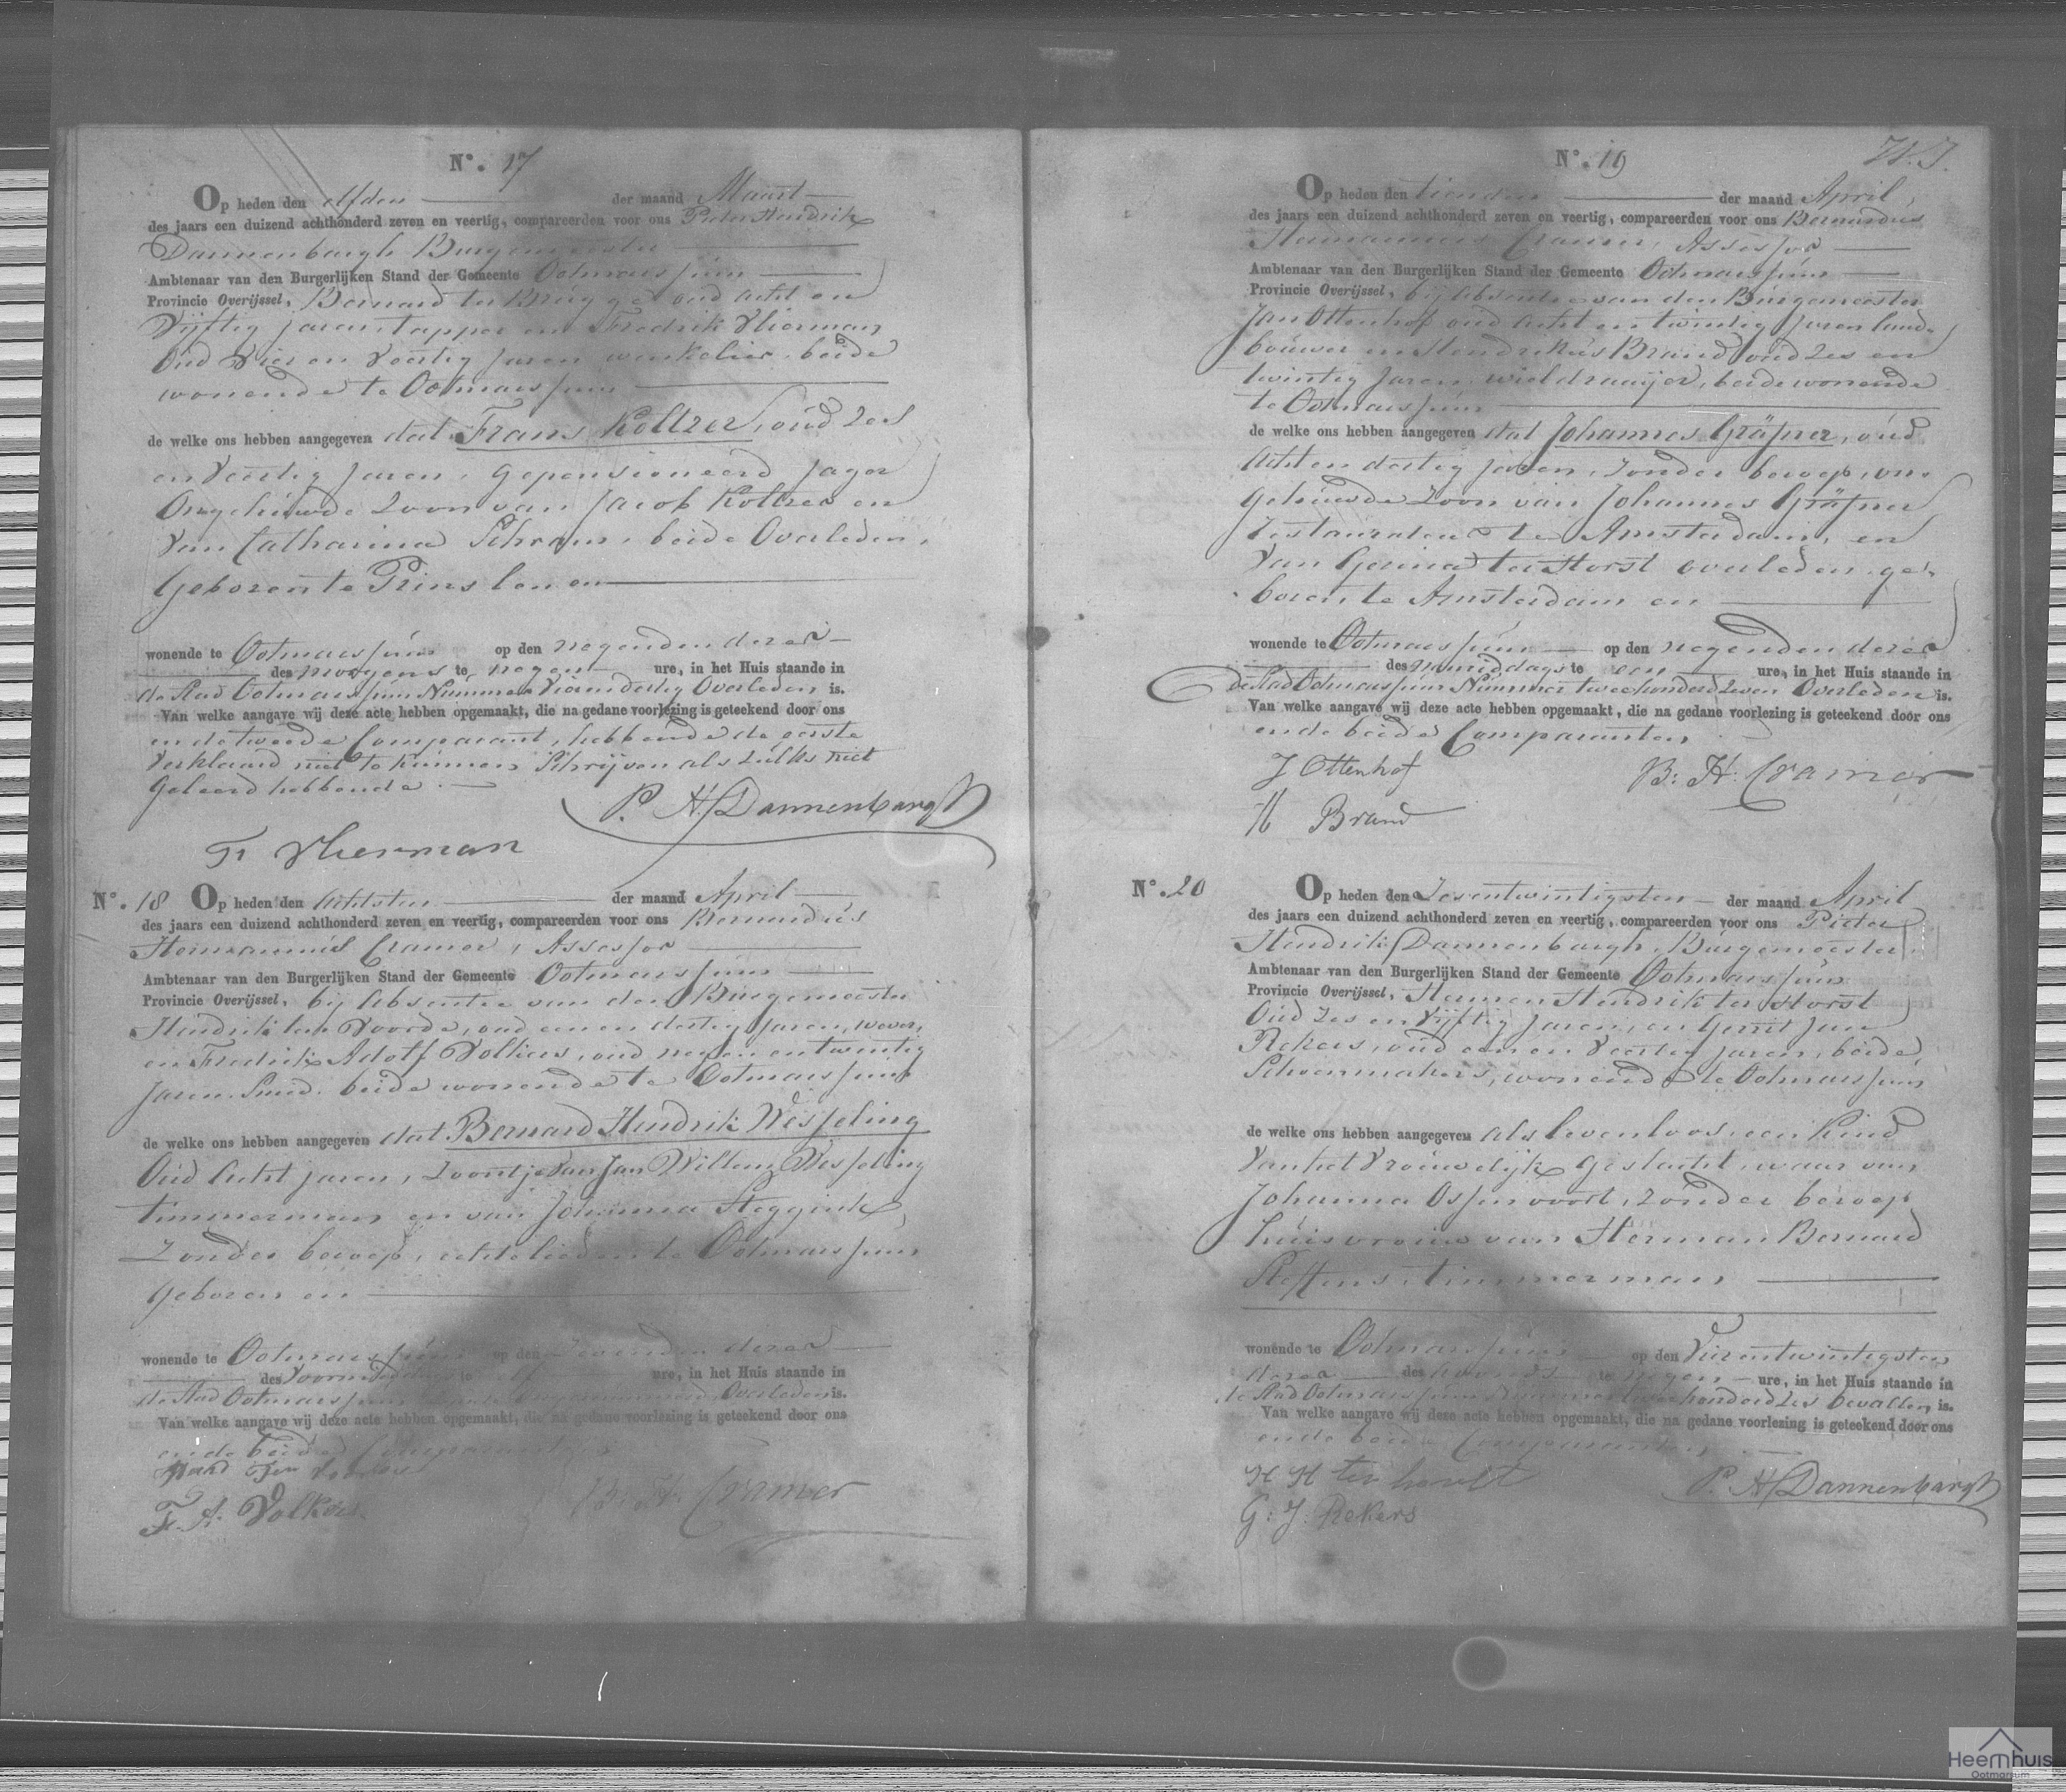 N°. 17
Op heden den elfden der maand Maart
des jaars een duizend achthonderd zeven en veertig, compareerden voor ons Pieter Hendrik
Dannenbargh Burgemeester
Ambtenaar van den Burgerlijken Stand der Gemeente Ootmarssum
Provincie Overijssel, Bernard ter Brugge oud acht en
Vijftig jaren tapper en Fredrik Vlierman
Oud Vier en Veertig jaren winkelier beide
wonende te Ootmarssum
de welke ons hebben aangegeven dat Frans Koltzer, oud zes
en Veertig jaren, gepensioneerd jager
Ongehuwde Zoon van Jacob Koltzer en
Van Catharina Schram, beide Overleden,
Geboren te Prinslen en
wonende te Ootmarssum op den negenden dezer
des morgens te negen ure, in het Huis staande in
de Stad Ootmarssum Nummer Vierendertig Overleden is.
Van welke aangave wij deze acte hebben opgemaakt, die na gedane voorlezing is geteekend door ons
en de tweede Comparant, hebbende de eerste
Verklaard niet te kunnen Schrijven als zulks niet
Geleerd hebbende.
P. H. Dannenbargh
F. Vlierman
N°. 18 Op heden den Achtsten der maand April
des jaars een duizend achthonderd zeven en veertig, compareerden voor ons Bernardus
Hermannus Cramer, Assessor
Ambtenaar van den Burgerlijken Stand der Gemeente Ootmarssum
Provincie Overijssel, bij Absentie van den Burgemeester
Hendrik ten Voorde, oud een en dertig jaren, wever,
en Fredrik Adolf Volkers, oud negen en twintig
Jaren Smid, beide wonende te Ootmarssum
de welke ons hebben aangegeven dat Bernard Hendrik Wesseling
Oud Acht jaren, Zoontje van Jan Willem Wesseling
timmerman en van Johanna Steggink,
Zonder beroep, echtelieden te Ootmarssum
Geboren en
wonende te Ootmarssum op den Zevenden dezer
des Voormiddags te ure, in het Huis staande in
de Stad Ootmarssum Overleden is.
Van welke aangave wij deze acte hebben opgemaakt, die na gedane voorlezing is geteekend door ons
en de beide Comparanten
B. H. Cramer
F. A. Volkers
N°. 19
Op heden den tienden der maand April,
des jaars een duizend achthonderd zeven en veertig, compareerden voor ons Bernardus
Hermannus Cramer, Assessor
Ambtenaar van den Burgerlijken Stand der Gemeente Ootmarssum
Provincie Overijssel, bij Absentie van den Burgemeester
Jan Ottenhof oud acht en twintig Jaren land-
bouwer en Hendrikus Brand oud zes en
twintig Jaren wieldraaijer, beide wonende
te Ootmarssum
de welke ons hebben aangegeven dat Johannes Gräfner, oud
Acht en dertig jaren, Zonder beroep, on-
gehuwde Zoon van Johannes Gräfner
restaurateur te Amsterdam, en
Van Gerina ter Horst overleden, ge-
boren te Amsterdam en
wonende te Ootmarssum op den negenden dezer
des namiddags te een ure, in het Huis staande in
de Stad Ootmarssum Nummer tweehonderd zeven Overleden is.
Van welke aangave wij deze acte hebben opgemaakt, die na gedane voorlezing is geteekend door ons
en de beide Comparanten
J Ottenhof B: H: Cramer
H Brand
N°. 20 Op heden den Zeventwintigsten der maand April
des jaars een duizend achthonderd zeven en veertig, compareerden voor ons Pieter
Hendrik Dannenbargh, Burgemeester
Ambtenaar van den Burgerlijken Stand der Gemeente Ootmarssum
Provincie Overijssel, Hermen Hendrik ter Horst
Oud Zes en Vijftig Jaren, en Gerrit Jan
Rekers, oud een en Veertig jaren, beide
Schoenmakers, wonende te Ootmarssum
de welke ons hebben aangegeven als levenloos een Kind
Van het Vrouwelijk Geslacht, waar van
Johanna Ossenvoort, zonder beroep
huisvrouw van Herman Bernard
Steffens, timmerman
wonende te Ootmarssum op den Vierentwintigsten
dezer des avonds te negen ure, in het Huis staande in
de Stad Ootmarssum Nummer tweehonderd zes bevallen is.
Van welke aangave wij deze acte hebben opgemaakt, die na gedane voorlezing is geteekend door ons
en de beide Comparanten
H H ter horst P. H. Dannenbargh
G: J. Rekers
Heemhuis
Ootmarsum